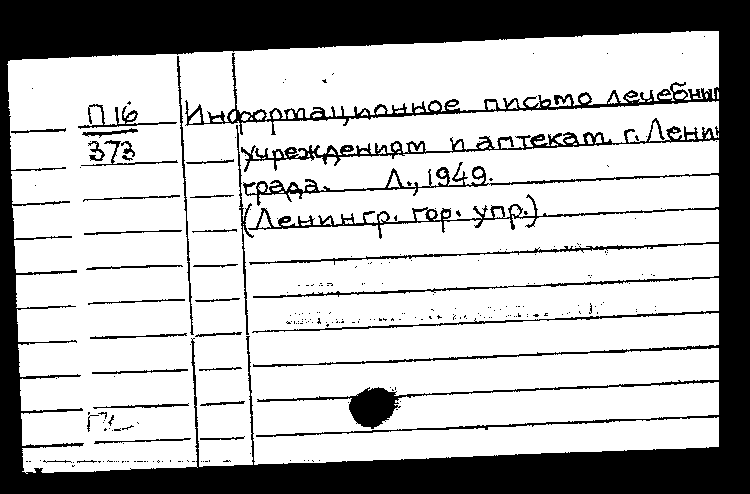 П16
373
Информационное письмо лечебным
учреждениям и аптекам г. Ленин
града. Л., 1949.
(Ленингр. гор. упр.).